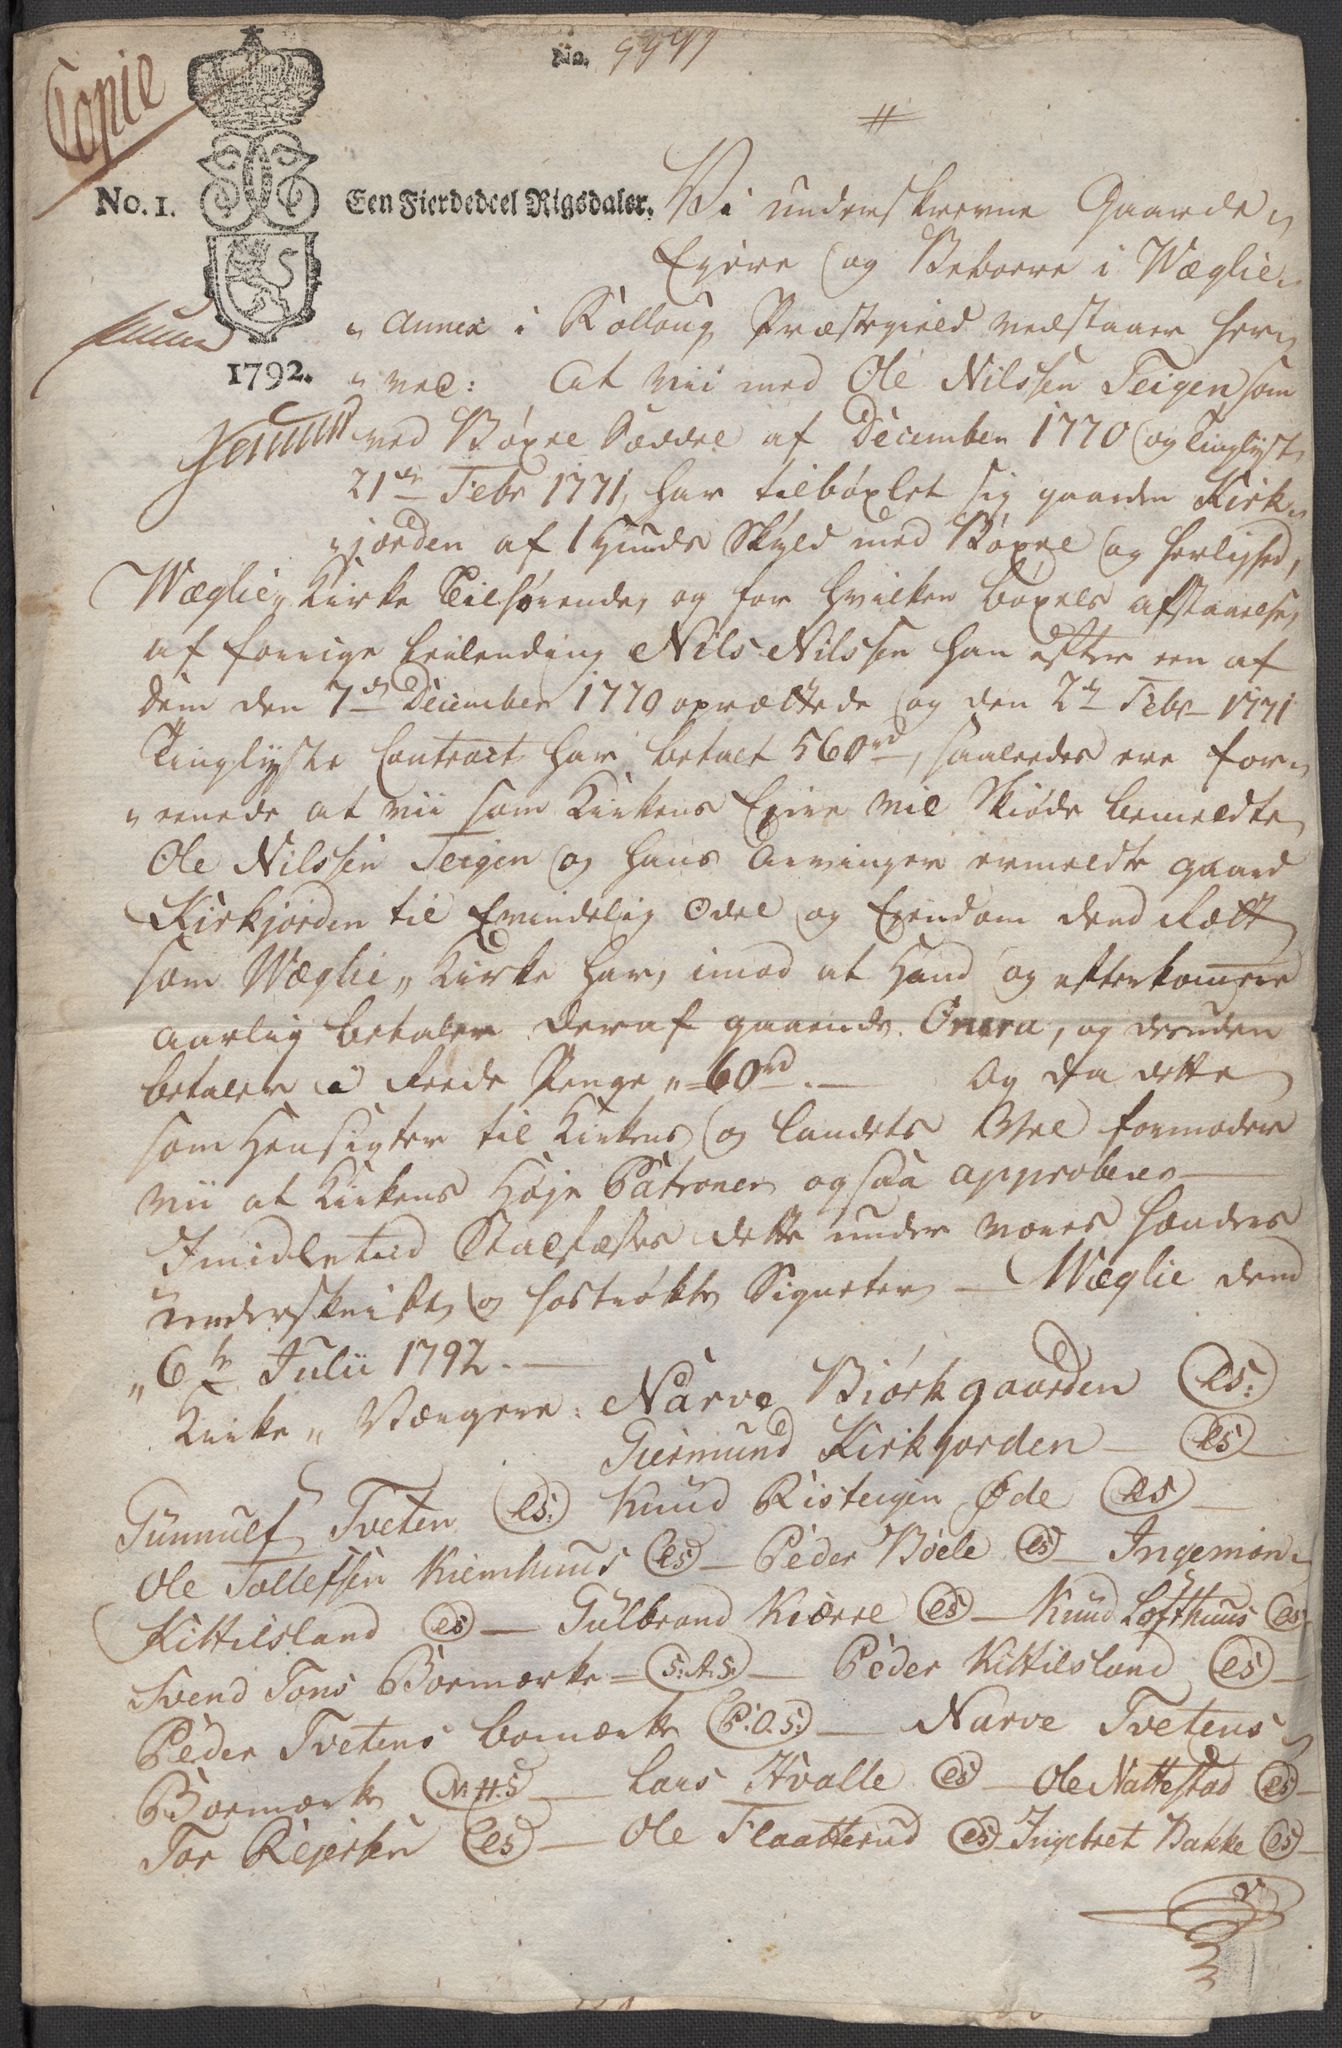 Copie
No. 9997
No. 1.
Een Fierdedeel Rigsdaler.
1792.
Vi underskrevne Gaarde„
Eyere og Beboere i Wæglie„
„Annex i Rolloug Præstegield vedstaaer her„
„ved: At vii med Ole Nilssen Teigen som
ved Bøxel Sæddel af December 1770 og Tinglyst
21de Febr 1771, har tilbøxlet sig gaarden Kirk„
„jorden af 1 Hunds Skyld med Bøxel og Herlighed,
Wæglie„ Kirke Tilhørende, og for hvilken bøxels afstaaelse,
af forrige Leilending Nils Nilssen han efter een af
dem den 7de December 1770 oprættede og den 2de Febr 1771
Tinglyste Contract har betalt 560rd, saaledes ere for„
„eenede at vii som Kirkens Eyere vil Skiøde bemeldte
Ole Nilssen Teigen og hans Arvinger ermeldte gaard
Kirkjorden til Evindelig Odel og Eyendom dend Rætt
som Wæglie„ Kirke har, imod at Hand og efterkomere
aarlig betaler deraf gaaende Onera, og desuden
betaler i Reede Penge „60rd. — Og da dette
som Hensigter til Kirkens og Landets Vel formoder
vii at Kirkens Høje Patroner ogsaa approberer —
Imidlertid Stadfæstes dette under vores hænders
underskrift og hostrøkte Signeter — Wæglie dend
„6te Julii 1792. —
Kirke„ Værgere: Narve Biørkgaarden LS:
Giermund Kirkjorden — LS —
Gunnulf Tveten LS: Knud Risteigen Øde LS —
Ole Tollefsen Kiemhuus LS — Peder Bøele LS — Ingemon„
Kittilsland LS — Gulbrand Kiærre LS — Knud Lofthuus LS
Svend Tons Boemærke — S.A.S. — Peder Kittilsland LS —
Peder Tvetens bomærke P.O.S: — Narve Tvetens
Boemærke N.H.S — Lars Hvalle LS — Ole Nattestad LS —
Tor Rejersen LS — Ole Flaatterud LS Ingebret Bakke LS —